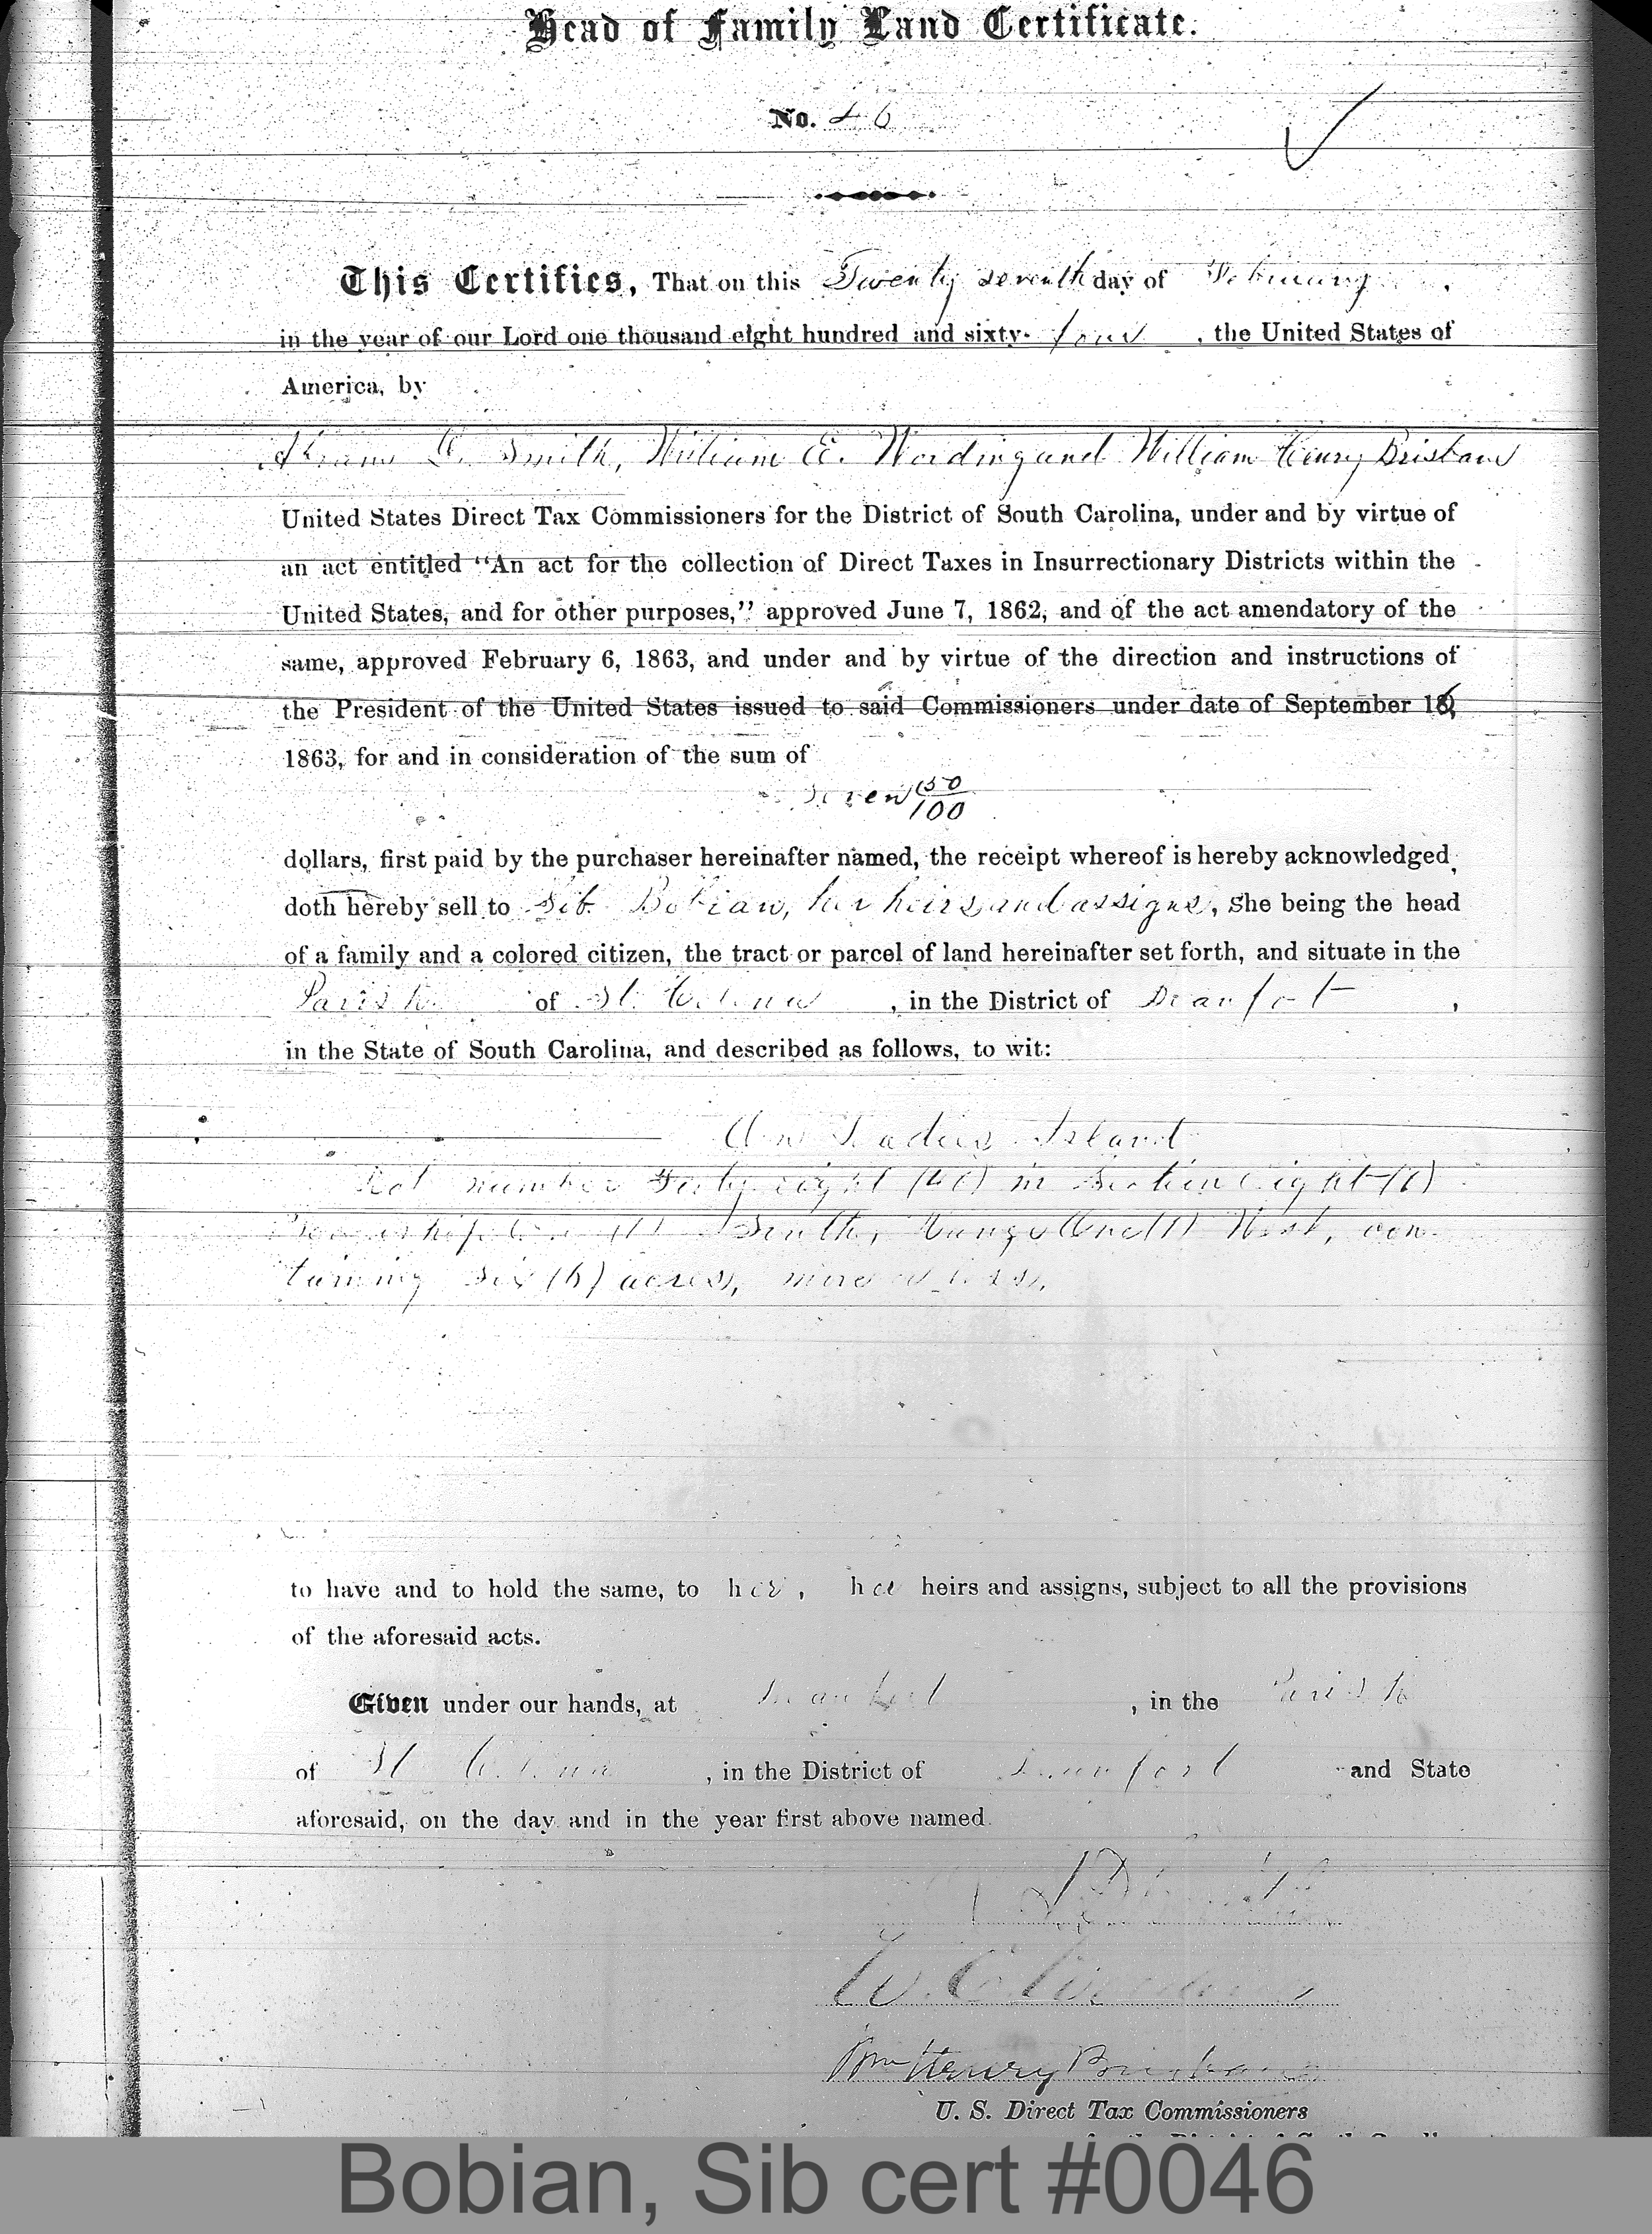 Head of Family Land Certificate.
No. 46
This Certifies, That on this Twenty seventh day of February,
in the year of our Lord one thousand eight hundred and sixty-four, the United States of
America, by
Abram D. Smith, William E. Wording and William Henry Brisbane
United States Direct Tax Commissioners for the District of South Carolina, under and by virtue of
an act entitled "An act for the collection of Direct Taxes in Insurrectionary Districts within the
United States, and for other purposes," approved June 7, 1862, and of the act amendatory of the
same, approved February 6, 1863, and under and by virtue of the direction and instructions of
the President of the United States issued to said Commissioners under date of September 16,
1863, for and in consideration of the sum of
Seven 50/100
dollars, first paid by the purchaser hereinafter named, the receipt whereof is hereby acknowledged,
doth hereby sell to Sib. Bobian, her heirs and assigns, she being the head
of a family and a colored citizen, the tract or parcel of land hereinafter set forth, and situate in the
Parish of St. Helena, in the District of Beaufort,
in the State of South Carolina, and described as follows, to wit:
On Ladies Island
Lot number eight in Section eight (8)
Township One (1) South, Range One (1) West, con-
taining six (6) acres, more or less.
to have and to hold the same, to her, her heirs and assigns, subject to all the provisions
of the aforesaid acts.
Given under our hands, at Beaufort, in the Parish
of St Helena, in the District of Beaufort and State
aforesaid, on the day and in the year first above named.
W. E. Wording
Wm Henry Brisbane
U. S. Direct Tax Commissioners
Bobian, Sib cert #0046